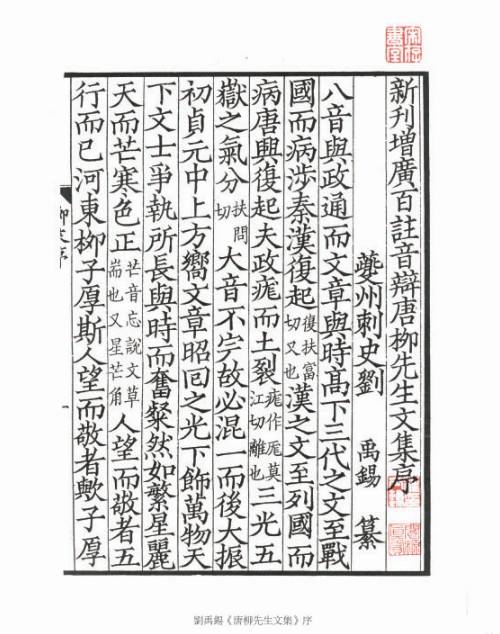 新刊增廣百註音辯唐柳先生文集序
夔州刺史劉 禹錫 纂
八音與政通而文章與時髙下三代之文至戰
國而病涉秦漢復起復扶富切又也漢之文至列國而
病唐興復起夫政痝而土裂痝作厖莫江切離也三光五
嶽之氣分扶問切大音不完故必混一而後大振
初貞元中上方嚮文章昭囘之光下飾萬物天
下文士爭執所長與時而奮粲然如繁星麗
天而芒寒色正芒音忘說文草耑也又星芒角人望而敬者五
行而已河東柳子厚斯人望而敬者歟子厚
柳文序
劉禹錫《唐柳先生文集》序